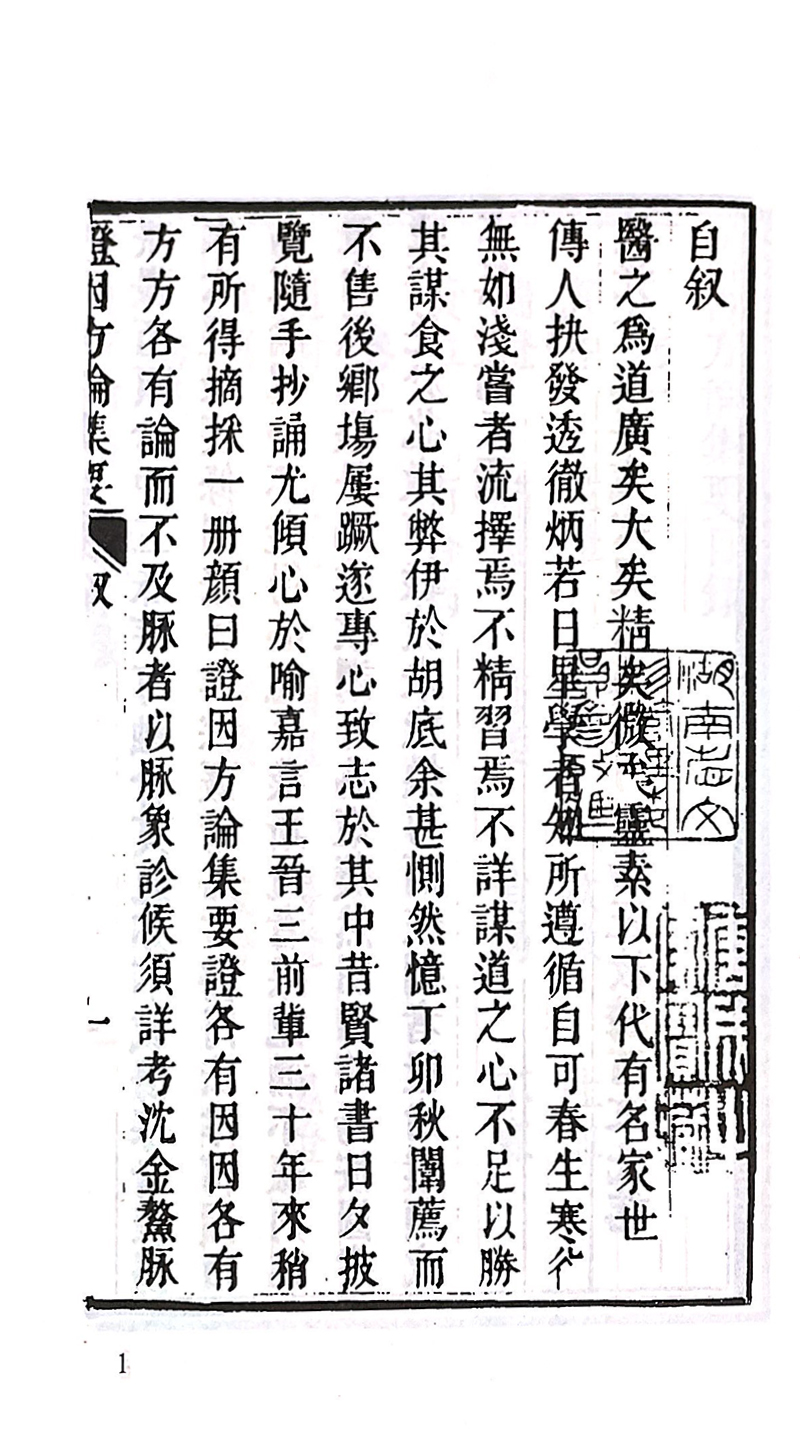 自叙
醫之爲道廣矣大矣精矣微矣靈素以下代有名家世
傳人抉發透徹炳若日星學者知所遵循自可春生寒谷
無如淺嘗者流擇焉不精習焉不詳謀道之心不足以勝
其謀食之心其弊伊於胡底余甚惻然憶丁卯秋闈薦而
不售後鄉塲屢蹶遂專心致志於其中昔賢諸書日夕披
覽隨手抄誦尤傾心於喻嘉言王晉三前輩三十年來稍
有所得摘採一册顏曰證因方論集要證各有因因各有
方方各有論而不及脉者以脉象診候須詳考沈金鰲脉
證因方論集要
叙
一
湖南志文
1